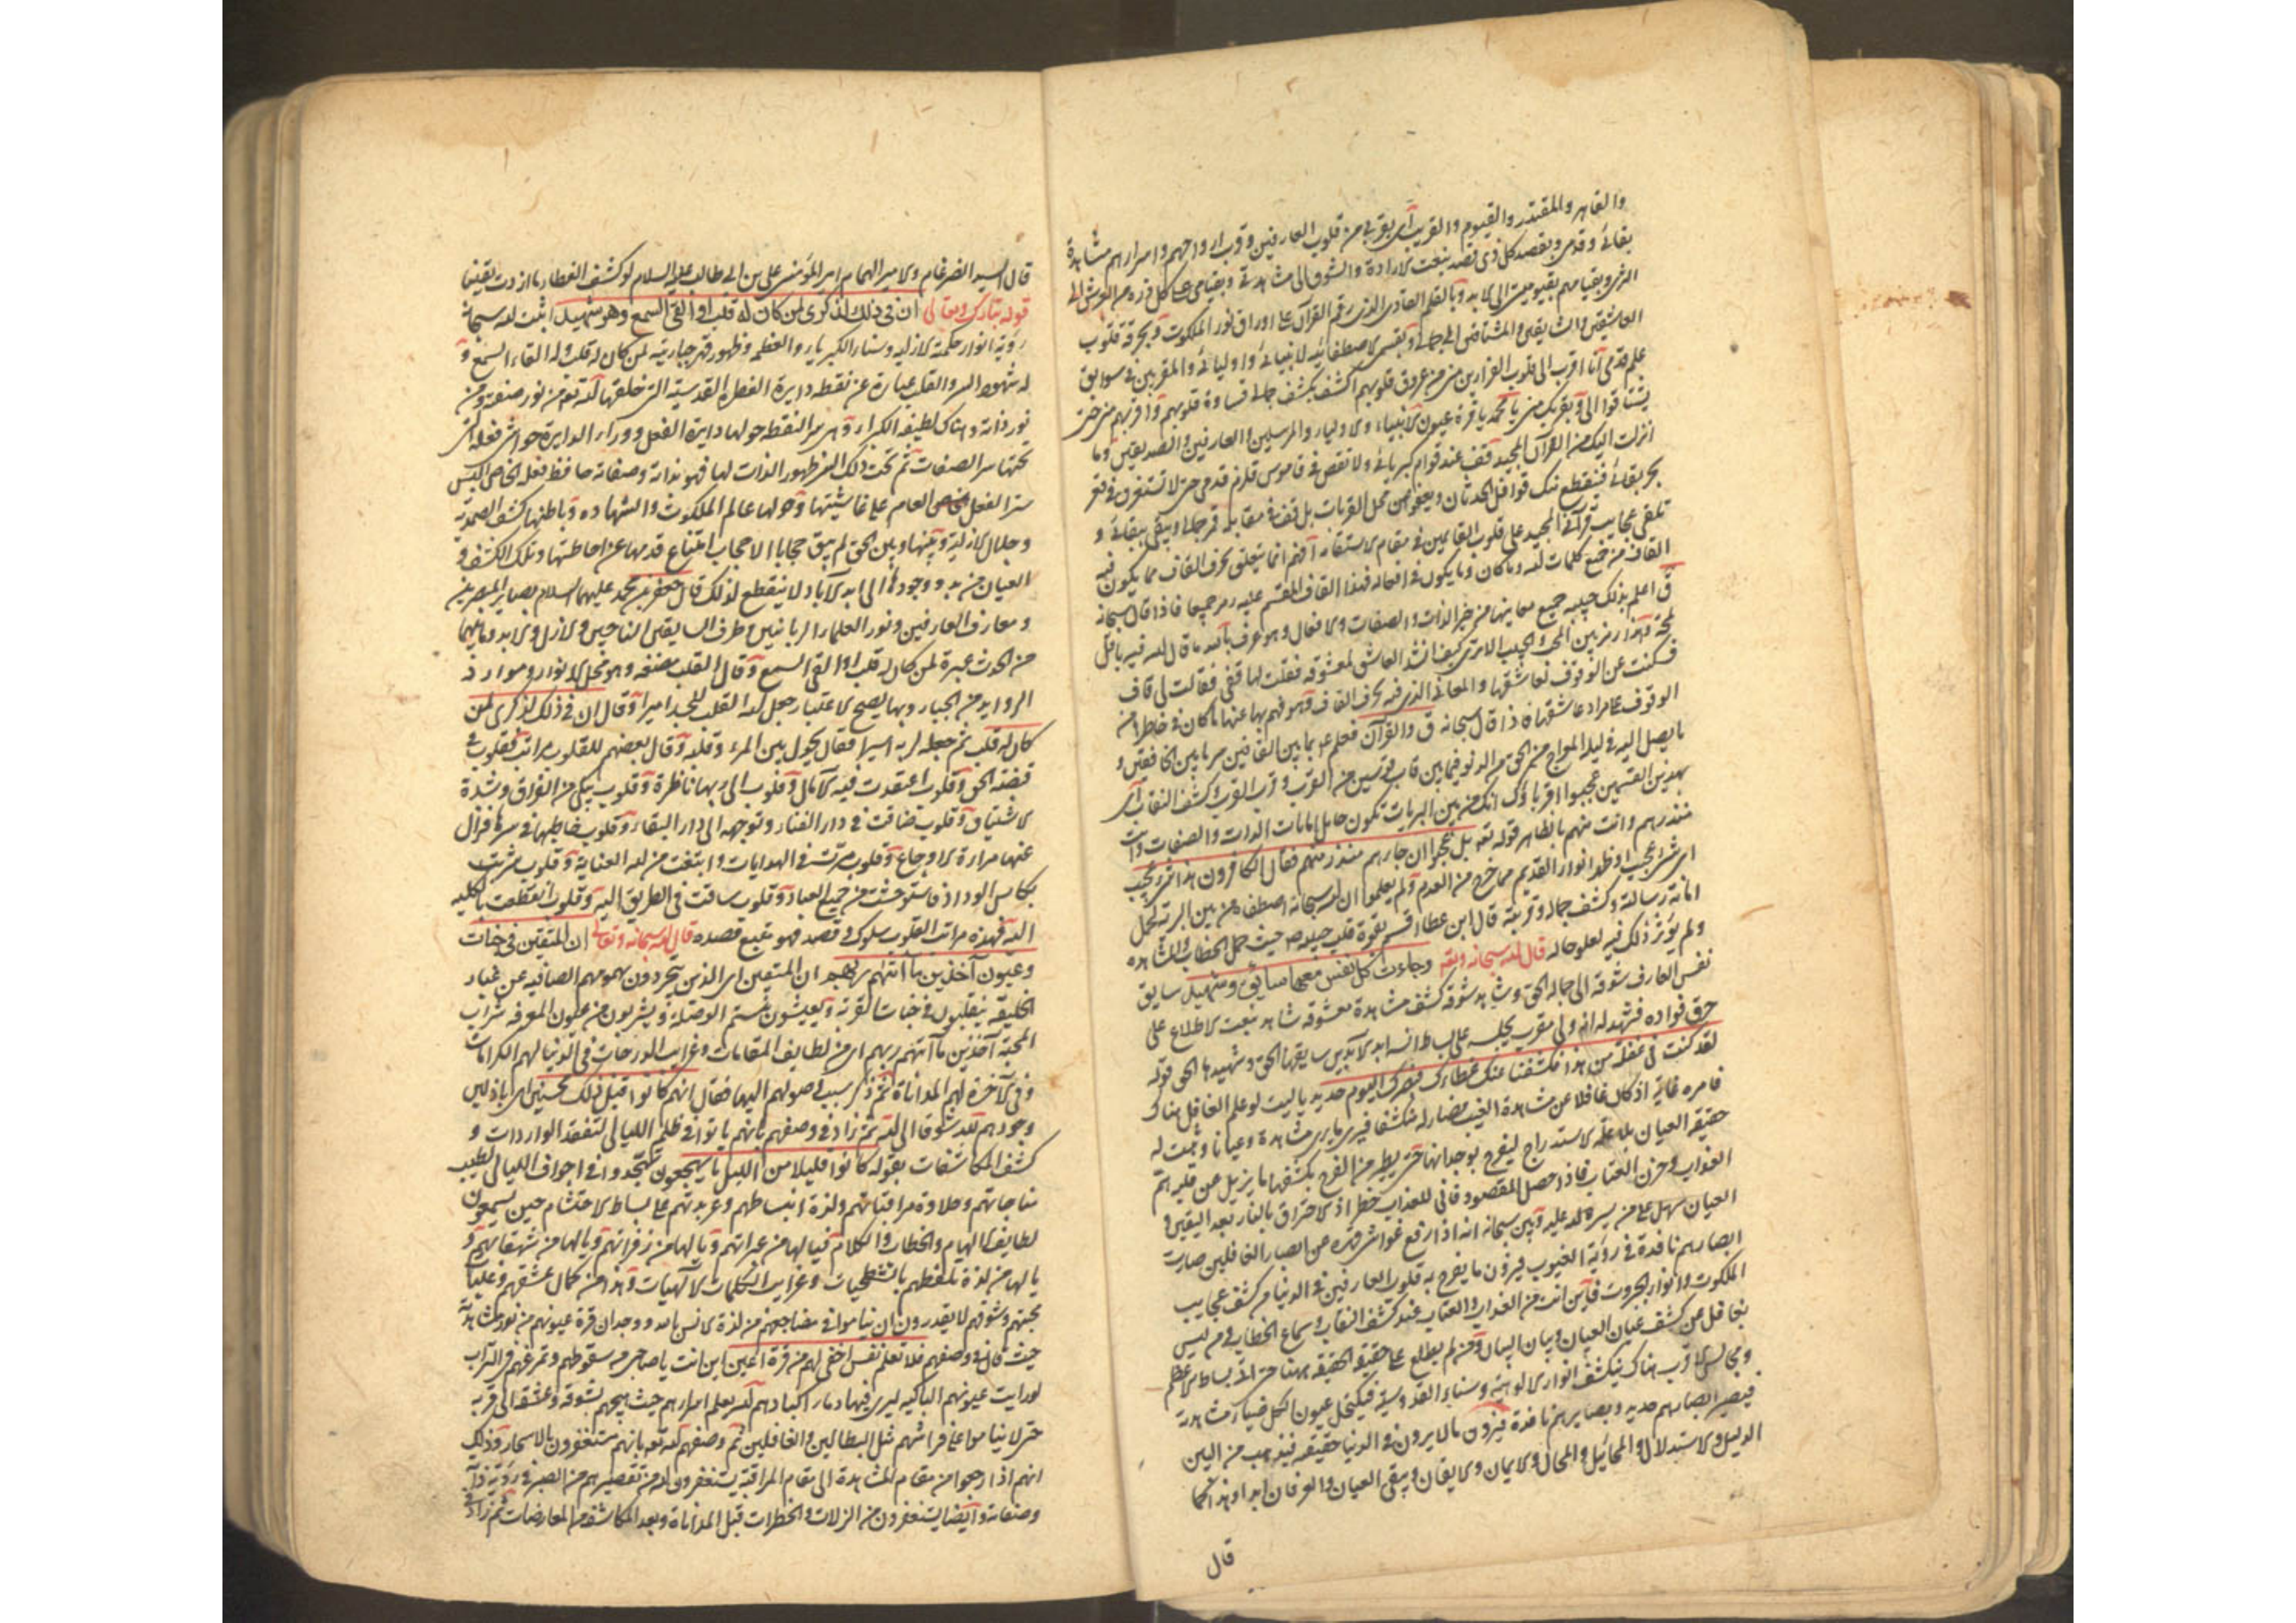 والقاهر والمقتدر والقيوم والقريب أى بقربى من قلوب العارفين وقرب ارواحهم واسرارهم مشاهدة
بقائى وقدمى وبقصد كل ذى قصد بنعت الارادة والشوق الى مشاهدتى وبقيامى على كل ذره من العرش الى
الثرى وبقيامهم بقيوميتى الى الابد وبالقلم القادى الذى رقم القرآن على اوراق نور الملكوت وبحرقة قلوب
العاشقين والشايقين والمشتاقين الى جمالى وبقسمى لاصطفائيه لانبيائى واوليائى والمقربين فى سوابق
علم قدمى انا اقرب الى قلوب الفارين منى من عروق قلوبهم اكشف بكشف جمالى قساوة قلوبهم واقربهم منى حتى
يشتاقوا الى وبقربك منى يا محمد يا قرة عيون الانبياء والاولياء والمرسلين والعارفين والصديقين وما
انزلت اليك من القرآن المجيد قف عند قوام كبريائى ولا تقص فى قاموس قلزم قدمى حتى لا تستغرق فى قعر
بحر بقائى فتنقطع منك قوافل الحدثان بل قف فى مقابلة قمر جمالى ويبقى ببقائى و
تلقى عجايب قرآنى المجيد على قلوب القايمين فى مقام الاستقامة افهم انما يتعلق بحرف القاف مما يكون فيه
القاف من جميع كلمات الله وما كان وما يكون فى افعاله فهذا القاف المقسم عليه رمز جميعها فاذا قال سبحانه
ق اعلم بذلك حبيبه جميع معاينها من خبر الذات والصفات والافعال وهو عرف بالله ما قال الله فيه باقل
لمحة وهذا رمز بين المحب والحبيب الا ترى كيف انشد العاشق لمعشوقه فقلت لها قفى فقالت لى قاف
فسكنت عن الوقوف لعاشقها والمعانى الذى فيه بحرف القاف وهو فهم بها عنها ما كان فى خاطرها من
الوقوف على مراد عاشقها فاذا قال سبحانه ق والقرآن فعلم عم بما بين القافين سر ما بين الخافقين و
ما يصل اليه فى ليلة المعراج من الحق من الدنو فيما بين قاب قوسين من القرب وقرب القرب وكشف النقاب اى
بهذين القسمين عجبوا اقرباؤك انك من بين البريات تكون حامل امانات الذات والصفات وانت
منذرهم وانت منهم بالظاهر قوله تعه بل عجبوا ان جاءهم منذر منهم فقال الكافرون هذا شئ عجيب
اى شئ اعجب اذ ظهر انوار القديم مما خرج من العدم ولم يعلموا ان الله سبحانه اصطفاه من بين البرية لحمل
امانة رسالته وكشف جماله وقربته قال ابن عطا اقسم بقوة قلب حبيبه ص حيث حمل الخطاب والمشاهده
ولم يؤثر ذلك فيه لعلو حاله قال الله سبحانه وتعه وجاءت كل نفس معها سائق وشهيد سايق
نفس العارف شوقه الى جماله الحق وشاهد شوقه كشف مشاهدة معشوقه شاهد بنعت الاطلاع على
حرق فؤاده فشهد له انه ولى مقرب يجلسه على بساط انسه ابد الآبدين سايقها الحق وشهيدها الحق قوله
لقد كنت فى غفلة من هذا فكشفنا عنك غطاءك فبصرك اليوم حديد يا ليت لو علم الغافل هناك
فامره غاية اذ كان غافلا عن مشاهدة الغيب فصار له منكشفا فيرى ما يرى مشاهدة وعيانا وثبت له
حقيقه العيان بلا علة الاستدراج ليفرح بوجدانها حتى يطير من الفرح بكشفها ما يزيل عن قلبه هم
العذاب وحزن العتاب فاذا حصل المقصود فانى للعذاب خطر اذ الاحتراق بالنار بعد اليقين و
العيان سهل على من يسره الله عليه وبين سبحانه انه اذا ارتفع غواشى قهره عن ابصار الغافلين صارت
ابصارهم نافذة فى رؤية الغيوب فيرون ما يفرح به قلوب العارفين فى الدنيا من كشف عجايب
الملكوت وانوار الجبروت فاين انت من العذاب والعتاب عند كشف النقاب وسماع الخطاب فمن ليس
بغافل عن كشف عيان العيان وبيان البيان ومن لم يطلع على حقيقة الحقيقه ههنا حتى الى بساط الاعظم
ومجالس القرب هناك ينكشف انوار الالوهية وسناء القدوسية فيكتحل عيون الكل ضياء مشاهدته
فيصير ابصارهم حديد وبصايرهم نافذة فيرون مالا يرون فى الدنيا حقيقه فيذهب من البين
الدليل والاستدلال والمخائيل والمحال والايمان والايقان ويبقى العيان والعرفان ابدا وهذا كما
قال
قال السيد الضرغام والامير الهمام امير المؤمنين على بن ابى طالب عليه السلام لو كشف الغطاء ما ازددت يقينا
قوله تبارك وتعالى ان فى ذلك لذكرى لمن كان له قلب او القى السمع وهو شهيد اثبت الله سبحانه
رؤية انوار حكمته الازليه وسناء الكبرياء والعظمه وظهور قهر جباريته لمن كان له قلب وله القاء السمع و
له شهود السر والقلب عبارة عن نقطه دايرة الفطرة القدسية التى خلقها الله تعه من نور صنعته ومن
نور ذاته وهناك لطيفه الكبراء وهى سر النقطه حولها دايرة الفعل ووراء الدايرة حواشى فعله التى
تحتها سر الصفات ثم تحت ذلك السر ظهور الذات لها فهو بذاته وصفاته حافظ فعله الخاص البس
ستر الفعل العام على غاشيتها وحولها عالم الملكوت والشهاده وباطنها كشف الصمدية
وجلال الازلية وبينها وبين الحق لم يبق حجابا الا حجاب امتناع قدمها عن احاطتها وتلك الكشف و
العيان من بدو وجودها الى ابد الآباد لا ينقطع لذلك قال جعفر بن محمد عليهما السلام بصاير المبصرين
ومعارف العارفين ونور العلماء الربانيين وطرف السابقين الناجين والازل والابد وما بينهما
من الحدث عبرة لمن كان له قلب او القى السمع وقال القلب مضغه وهو محل الانوار وموارد
الزوايد من الجبار وبها يصح الاعتبار جعل الله القلب للجسد اميرا وقال ان فى ذلك لذكرى لمن
كان له قلب ثم جعله لربه اسيرا فقال يحول بين المرء وقلبه وقال بعضهم للقلوب مراتب فقلوب فى
قبضة الحق وقلوب اعتقدت فيه الآمال وقلوب الى ربها ناظرة وقلوب يبكى من الفراق وشدة
الاشتياق وقلوب ضاقت فى دار الفناء وتوجهه الى دار البقاء وقلوب خاطبها فى سرها فزال
عنها مرارة الاوجاع وقلوب سرت فى الهدايات وابتغت من الله العناية وقلوب شربت
بكاس الوداد فاستوحشت من جميع العباد وقلوب ساقت فى الطريق اليه وقلوب انقطعت بالكليه
اليه فهذه مراتب القلوب سلوك وقصد فهو تتبع قصده قال الله سبحانه وتعالى ان المتقين فى جنات
وعيون آخذين ما اتاهم ربهم ان المتقين اى الذين يتجردون بهمومهم الصافيه عن غبار
الخليقه يتقلبون فى جنات القربة ويعيشون بنسيم الوصلة ويشربون من عيون المعرفه شراب
المحبة آخذين ما آتاهم ربهم اى من لطايف المقامات وغرايب الدرجات فى الدنيا لهم الكرامات
وفى الآخرة لهم المداناة ثم ذكر سبب وصولهم اليها فقال انهم كانوا قبل ذلك محسنين اى باذلين
وجودهم لله شوقا الى الله ثم زاد فى وصفهم بانهم باتوا فى ظلم الليالى لتفقد الواردات و
كشف المكاشفات بقوله كانوا قليلا من الليل ما يهجعون يتهجدوا فى اجواف الليالى لطيب
مناجاتهم وحلاوة مراقباتهم ولذة انبساطهم وعربدتهم على بساط الاحتشام حين يسمعون
لطايف الهيام والخطاب والكلام فيالها من عبراتهم ويالها من زفراتهم ويالها من شهقاتهم و
يالها من لذة تلفظهم بالشطحيات وغرايب الكلمات الآلهيات وهذا من كمال عشقهم وغلبات
محبتهم وشوقهم لا يقدرون ان يناموا فى مضاجعهم من لذة الانس بالله ووجدان قرة عيونهم من نور مشاهدته
حيث قال فى وصفهم فلا تعلم نفس اخفى لهم من قرة اعين اين انت يا صاحبى من سقوطهم وتمرغهم فى التراب
لو رايت عيونهم الباكيه ليرى فيها دماء اكبادهم الله يعلم اسرارهم حيث هيجهم بشوقه وعشقه الى قربه
حتى لا يناموا على فراشهم مثل البطالين والغافلين ثم وصفهم الله تعه بانهم يستغفرون بالاسحار وذلك
انهم اذا رجعوا من مقام المشاهدة الى مقام المراقبة يستغفرون الله من تقصيرهم من الصبر فى رؤية ذاته
وصفاته وايضا يستغفرون من الزلات والخطرات قبل المداناة وبعد المكاشفه من المعارضات ثم زاد فى